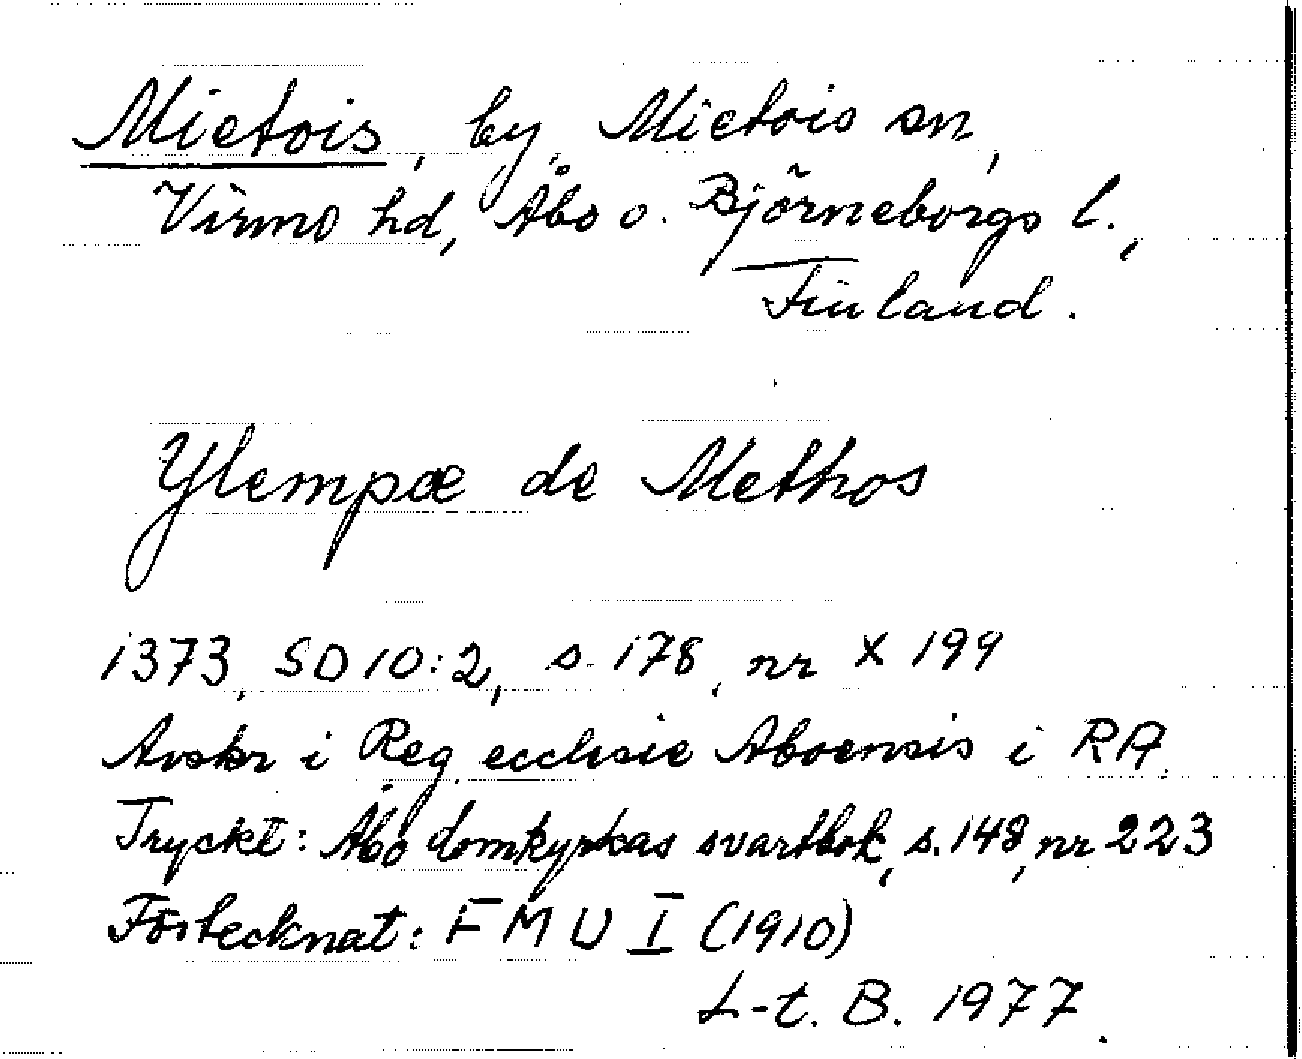 Mietois, by, Mietois sn,
Virmo hd, Åbo o. Björneborgs l.,
Finland.
Ylempæ de Methos
1373, SD 10:2, s. 178, nr X 199
Avskr i Reg. ecclesie Aboensis i RA.
Tryckt: Åbo domkyrkas svartbok, s. 148, nr 223
Förtecknat: FMU I (1910)
L-t. B. 1977.